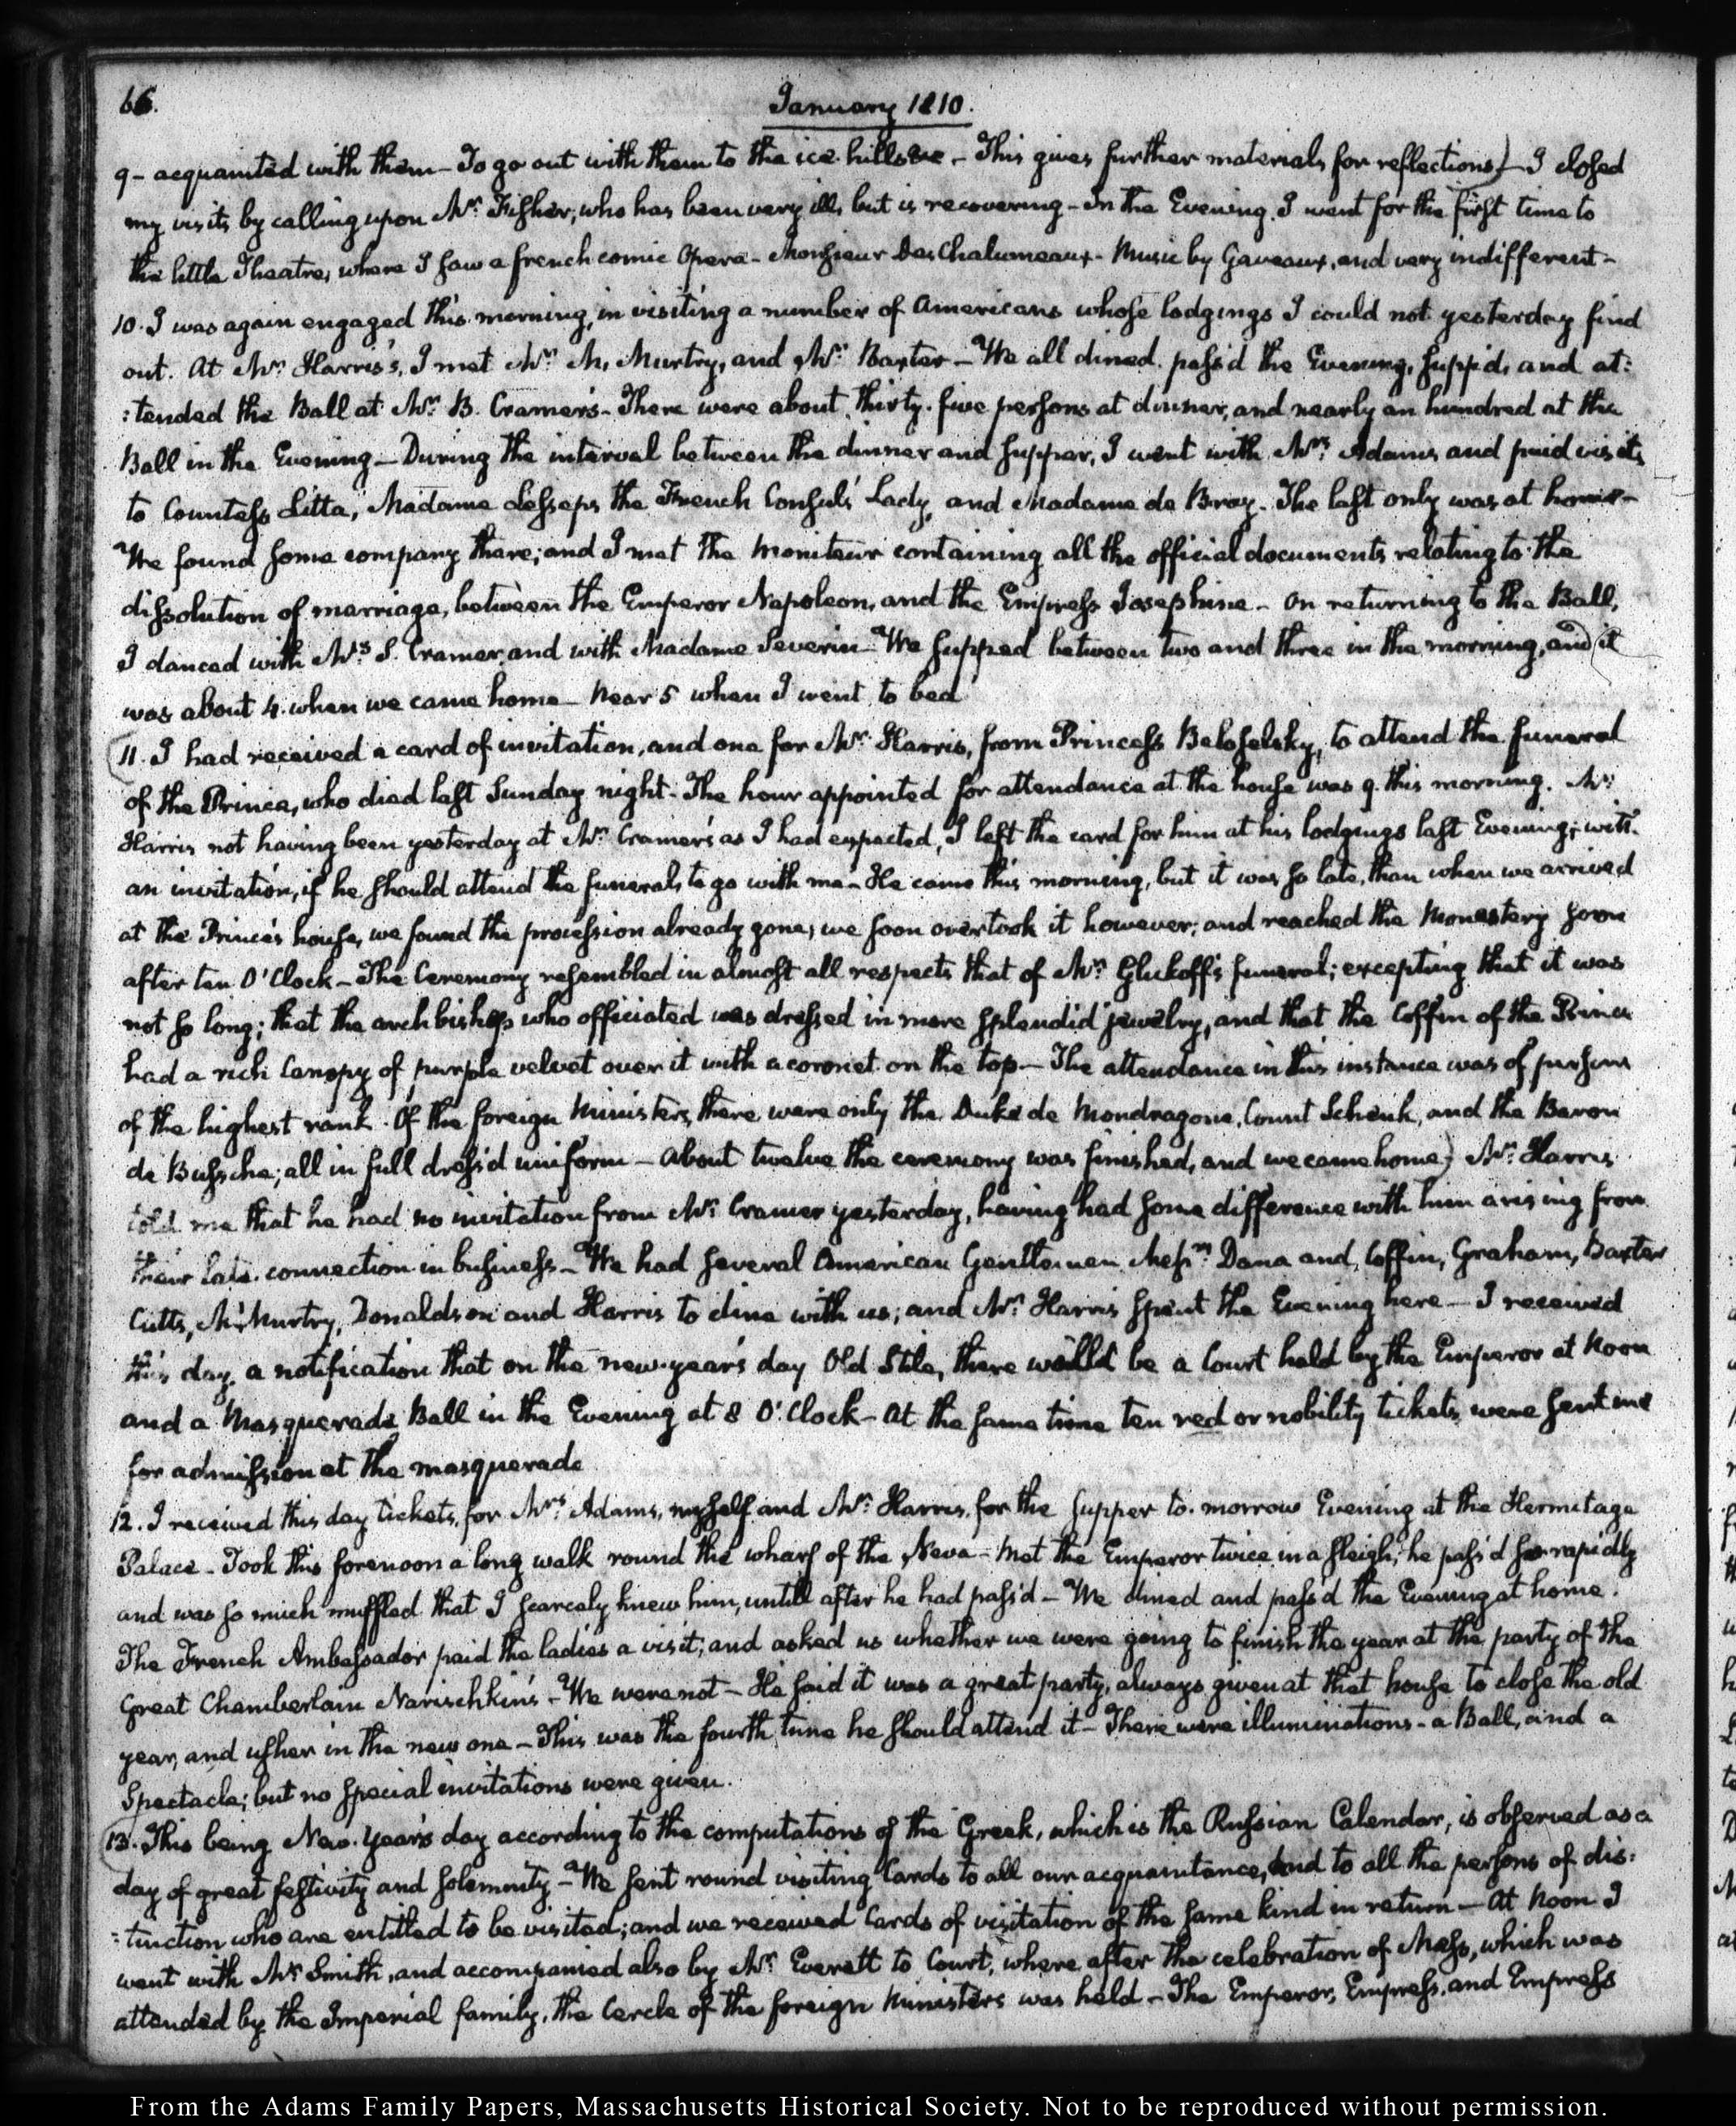 66.
January 1810.
9 - acquainted with them - To go out with them to the ice-hills &c - This gives further materials for reflections) - I closed
my visits by calling upon Mr. Fisher, who has been very ill, but is recovering - In the Evening I went for the first time to
the little Theatre, where I saw a french comic Opera - Monsieur Des Chalumeaux - Music by Gaveaux, and very indifferent -
10. I was again engaged this morning, in visiting a number of Americans whose lodgings I could not yesterday find
out. At Mr. Harris's, I met Mr. Mc.Murtry, and Mr. Baxter - We all dined. pass'd the Evening, supp'd, and at:
:tended the Ball at Mr. B. Cramer's - There were about thirty-five persons at dinner, and nearly an hundred at the
Ball in the Evening - During the interval between the dinner and supper, I went with Mrs. Adams and paid visits
to Countess Litta, Madame Lesseps the French Consul's Lady, and Madame de Bray. The last only was at home -
We found some company there; and I met the Moniteur containing all the official documents relating to the
dissolution of marriage, between the Emperor Napoleon, and the Empress Josephine - On returning to the Ball,
I danced with Mrs. S. Cramer, and with Madame Severin - We supped between two and three in the morning, and (it
was about 4. when we came home - Near 5 when I went to bed
11. I had received a card of invitation, and one for Mr. Harris, from Princess Beloselsky, to attend the funeral
of the Prince, who died last Sunday night - The hour appointed for attendance at the house was 9. this morning. Mr.
Harris not having been yesterday at Mr. Cramer's as I had expected, I left the card for him at his lodgings last Evening; with
an invitation, if he should attend the funeral, to go with me - He came this morning, but it was so late, than when we arrived
at the Prince's house, we found the procession already gone; we soon overtook it however; and reached the Monastery soon
after ten O'Clock - The Ceremony resembled in almost all respects that of Mr. Glukoff's funeral; excepting that it was
not so long; that the archbishop who officiated was dressed in more splendid jewelry, and that the Coffin of the Prince
had a rich Canopy of purple velvet over it with a coronet on the top - The attendance in this instance was of persons
of the highest rank. Of the foreign Ministers, there were only the Duke de Mondragone, Count Schenk, and the Baron
de Bussche; all in full dress'd uniform - About twelve the ceremony was finished, and we came home) Mr. Harris
told me that he had no invitation from Mr. Cramer yesterday, having had some difference with him arising from
their late connection in business - We had several American Gentlemen Messrs. Dana and, Coffin, Graham, Baxter
Cutts, McMurtry, Donaldson and Harris to dine with us; and Mr. Harris spent the Evening here - I received
this day, a notification that on the new-year's day Old Stile, there would be a Court held by the Emperor at Noon
and a Masquerade Ball in the Evening at 8 O'Clock - At the same time ten red or nobility tickets were sent me
for admission at the masquerade
12. I received this day tickets, for Mrs. Adams, myself and Mr. Harris, for the supper to-morrow Evening at the Hermitage
Palace - Took this forenoon a long walk round the wharf of the Neva - Met the Emperor twice in a sleigh; he pass'd so rapidly
and was so much muffled that I scarcely knew him, untill after he had pass'd - We dined and pass'd the Evening at home.
The French Ambassador paid the ladies a visit; and asked us whether we were going to finish the year at the party of the
Great Chamberlain Narischkin's - We were not - He said it was a great party, always given at that house to close the old
year, and usher in the new one - This was the fourth time he should attend it - There were illuminations - a Ball, and a
Spectacle; but no special invitations were given.
13. This being New-Year's day according to the computations of the Greek, which is the Russian Calendar, is observed as a
day of great festivity and solemnity - We sent round visiting Cards to all our acquaintance, and to all the persons of dis:
:tinction who are entitled to be visited; and we received Cards of visitation of the same kind in return - At Noon I
went with Mr. Smith, and accompanied also by Mr. Everett to Court, where after the celebration of Mass, which was
attended by the Imperial family, the Cercle of the foreign Ministers was held - The Emperor, Empress, and Empress
From the Adams Family Papers, Massachusetts Historical Society. Not to be reproduced without permission.